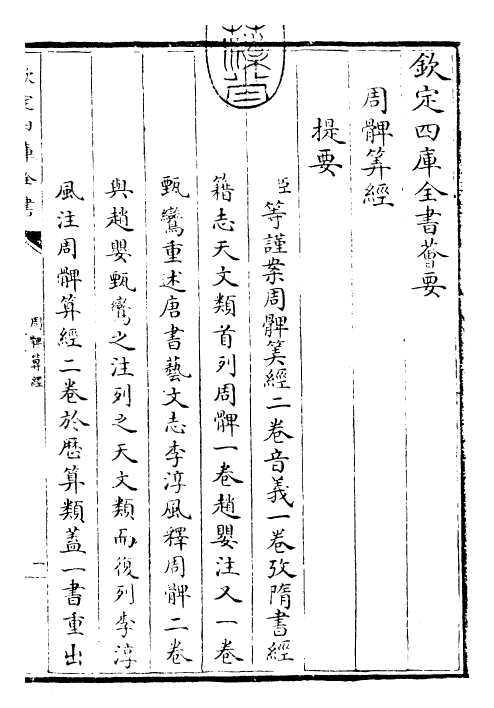 欽定四庫全書薈要
周髀算經
提要
臣等謹案周髀算經二卷音義一卷攷隋書經
籍志天文類首列周髀一卷趙嬰注又一卷
甄鸞重述唐書藝文志李淳風釋周髀二卷
與趙嬰甄鸞之注列之天文類而復列李淳
風注周髀算經二卷於厯算類蓋一書重出
欽定四庫全書
周髀算經
一